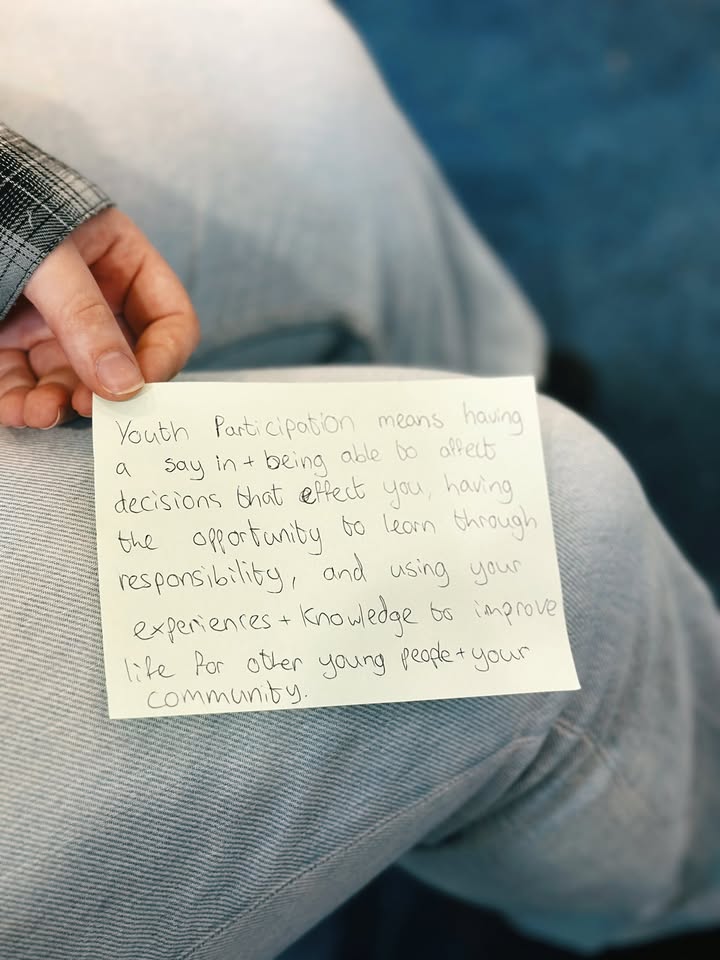 Youth Participation means having
a say in + being able to affect
decisions that effect you, having
the opportunity to learn through
responsibility, and using your
experiences + Knowledge to improve
life for other young people + your
community.